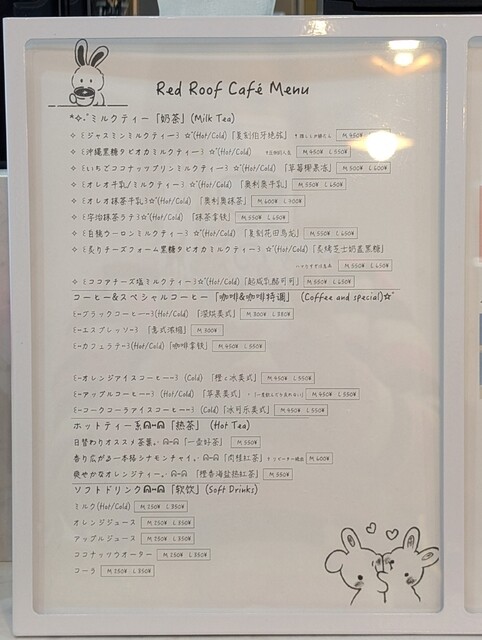 Red Roof Café Menu
ミルクティー「奶茶」(Milk Tea)
ジャスミンミルクティー ☆(Hot/Cold)「复刻伯牙绝弦」 M 450¥
沖縄黒糖タピオカミルクティー M 450¥ L 550¥
いちごココナッツプリンミルクティー ☆(Hot/Cold)「草莓椰果冻」 M 500¥ L 600¥
オレオ牛乳/ミルクティー ☆(Hot/Cold)「奥利奥牛乳」 M 550¥ L 650¥
オレオ抹茶牛乳 ☆(Hot/Cold)「奥利奥抹茶」 M 600¥ L 700¥
宇治抹茶ラテ ☆(Hot/Cold)「抹茶拿铁」 M 550¥ L 650¥
白桃ウーロンミルクティー ☆(Hot/Cold)「复刻花田乌龙」 M 550¥ L 650¥
炙りチーズフォーム黒糖タピオカミルクティー ☆(Hot/Cold)「炙烤芝士奶盖黑糖」
M 550¥ L 650¥
ココアチーズ塩ミルクティー ☆(Hot/Cold)「起司乳酪可可」 M 550¥ L 650¥
コーヒー&スペシャルコーヒー「咖啡&咖啡特调」(Coffee and special)☆
ブラックコーヒー (Hot/Cold)「深焙美式」 M 300¥ L 350¥
エスプレッソ「意式浓缩」 M 300¥
カフェラテ (Hot/Cold)「咖啡拿铁」 M 450¥ L 550¥
オレンジアイスコーヒー (Cold)「橙c冰美式」 M 450¥ L 550¥
アップルコーヒー (Hot/Cold)「苹果美式」 M 450¥ L 550¥
コークコーラアイスコーヒー (Cold)「冰可乐美式」 M 450¥ L 550¥
ホットティー系「热茶」(Hot Tea)
日替わりオススメ茶葉。「一壶好茶」 M 550¥
香り広がる一本格シナモンチャイ。「肉桂紅茶」 M 600¥
爽やかなオレンジティー。「橙香海盐热红茶」 M 550¥
ソフトドリンク「软饮」(Soft Drinks)
ミルク(Hot/Cold) M 250¥ L 350¥
オレンジジュース M 250¥ L 350¥
アップルジュース M 250¥ L 350¥
ココナッツウオーター M 250¥ L 350¥
コーラ M 250¥ L 350¥